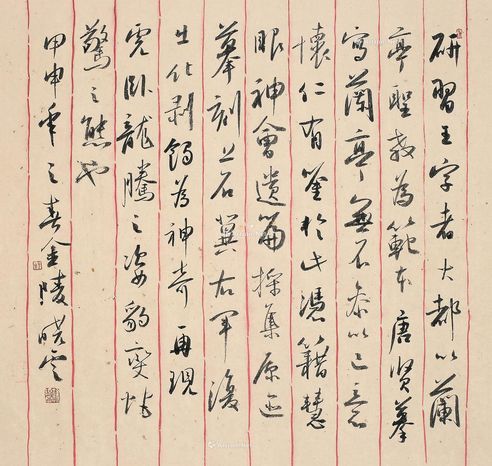 研習王字者大都以蘭
亭聖教為範本唐賢摹
寫蘭亭無不參以己意
懷仁有鉴於此憑藉慧
眼神會遺篇採集原迹
摹刻上石冀右軍復
生化剥蝕為神奇再現
虎卧龍騰之姿豹变蛇
驚之態也
甲申年之春金陵晓云